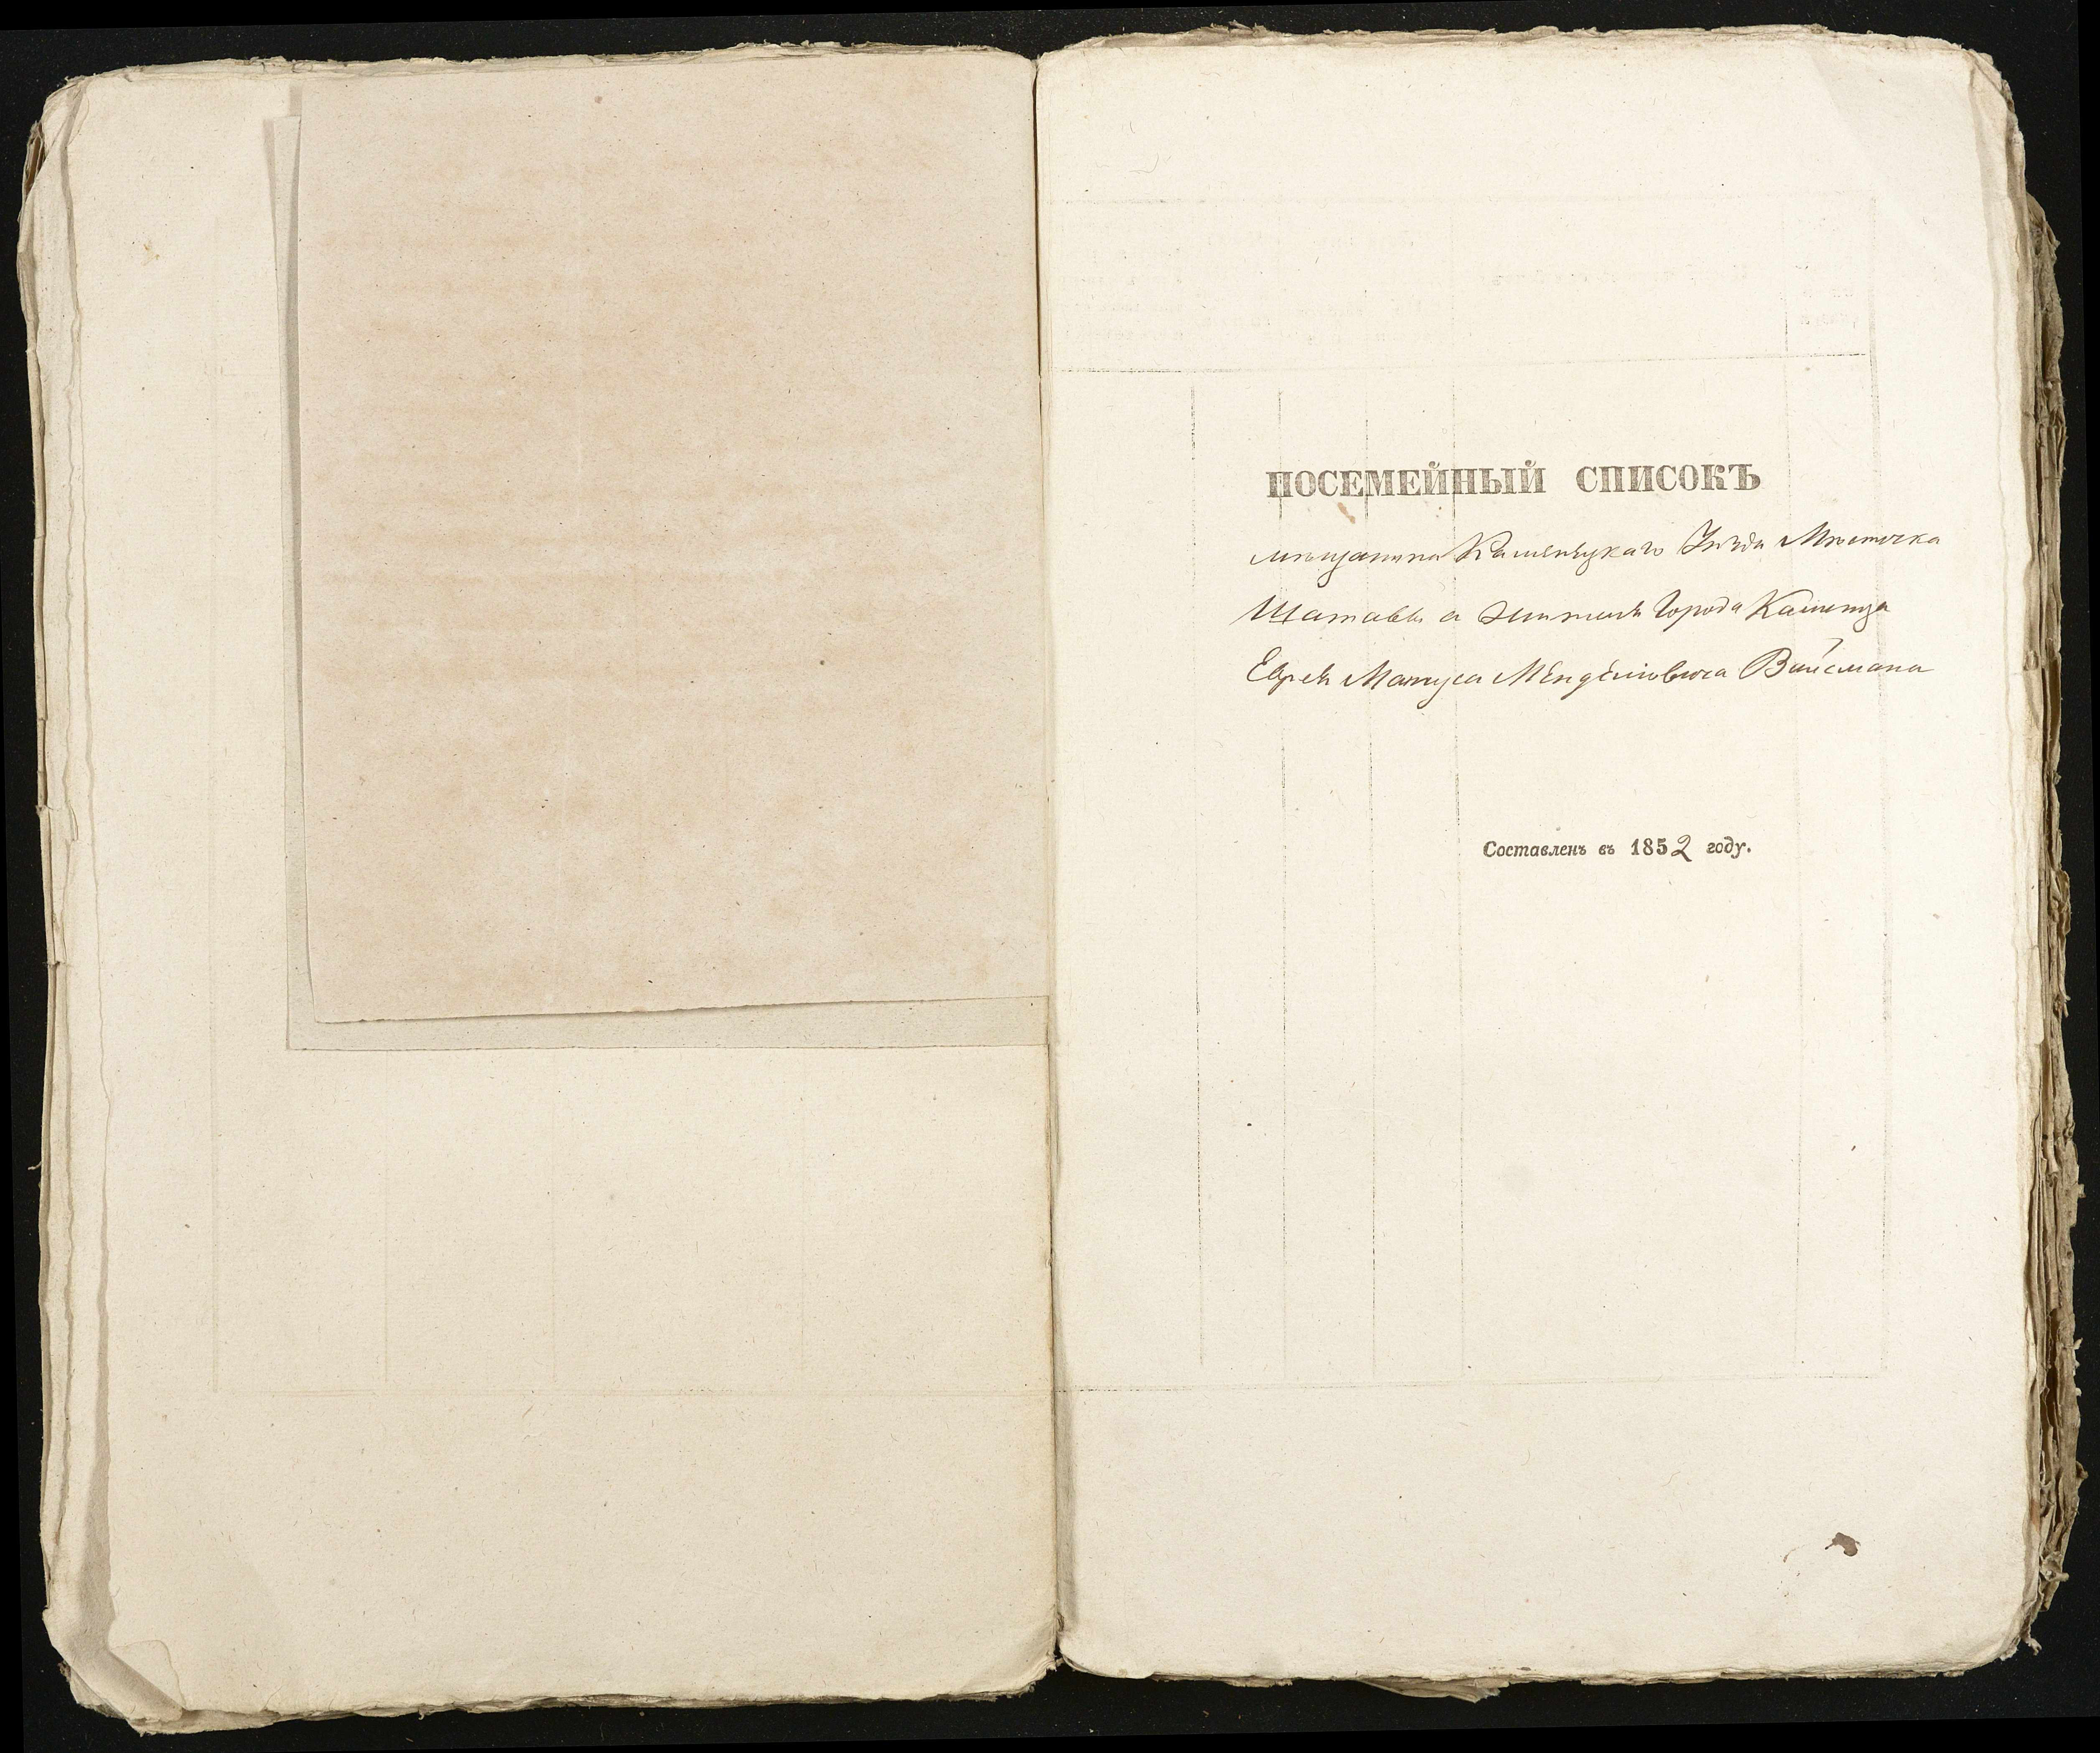 ПОСЕМЕЙНЫЙ СПИСОКЪ
мѣщанина Каменецкаго Уѣзда Мѣстечка
Шатавы а жителя Города Каменца
Еврея Матуса Мендѣлиовича Вайсмана
Составленъ въ 1852 году.